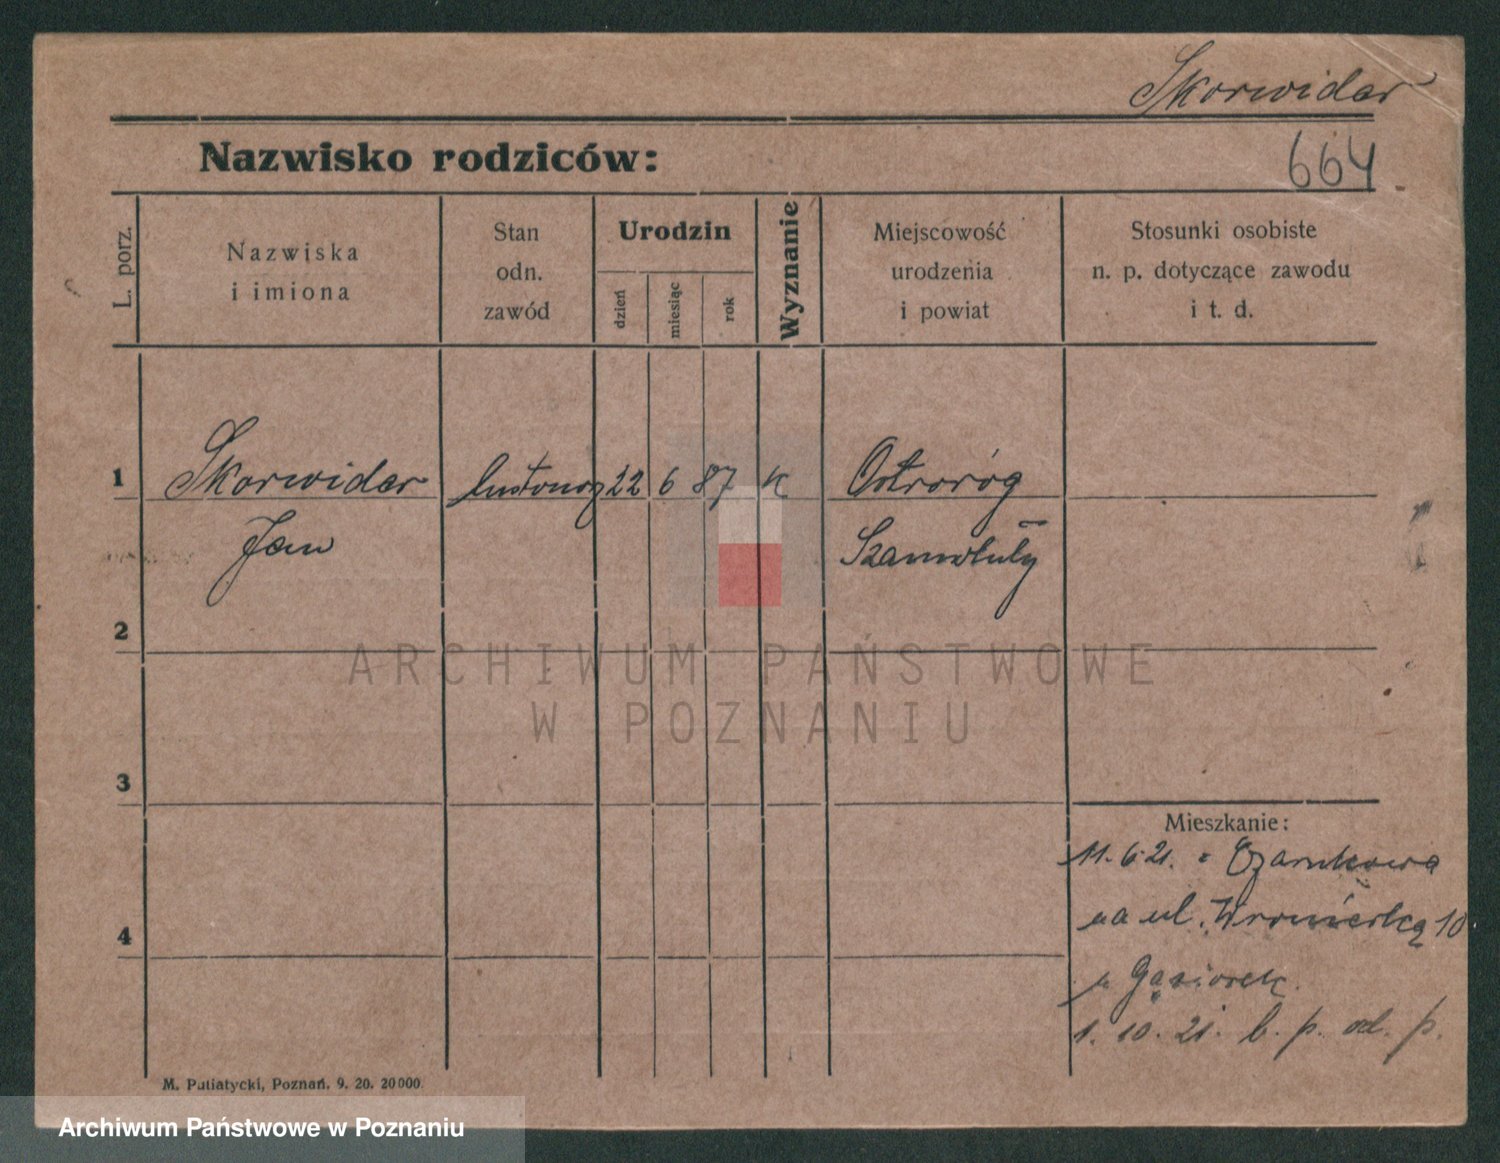 Skorwider
Nazwisko rodziców:
664
L. porz.
Nazwiska
i imiona
Stan
odn.
zawód
Urodzin
dzień
miesiąc
rok
Wyznanie
Miejscowość
urodzenia
i powiat
Stosunki osobiste
n. p. dotyczące zawodu
i t. d.
1 Skorwider 22 6 87 k Ostroróg
Jan Szamotuły
2
3
4
Mieszkanie:
11. 6. 21. z Czarnkowa
na ul. Wroniecką 10
u Gąsiorek.
1. 10. 21. b. p. od. p.
M. Putiatycki, Poznań. 9. 20. 20000.
ARCHIWUM PAŃSTWOWE
W POZNANIU
Archiwum Państwowe w Poznaniu